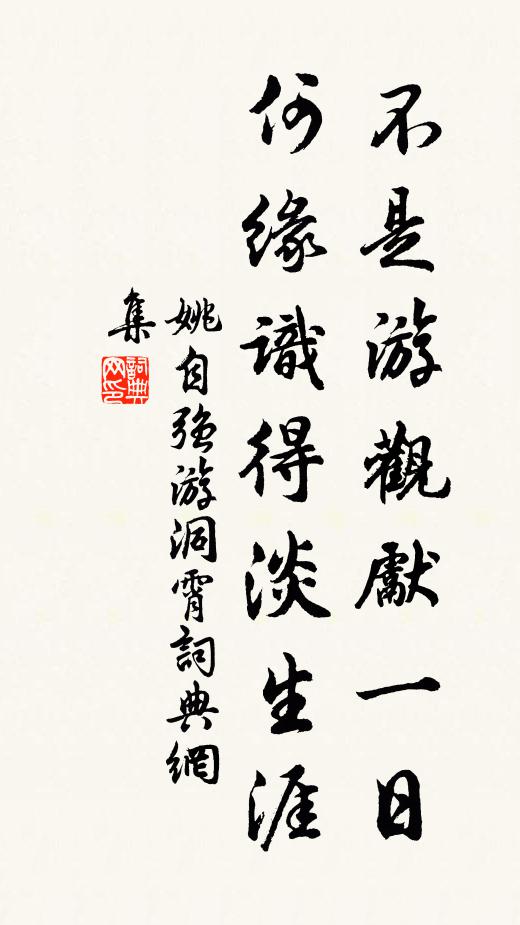 不是游觀獻一日
何緣識得淡生涯
姚自強游洞霄詞典網
集
詞典
网印